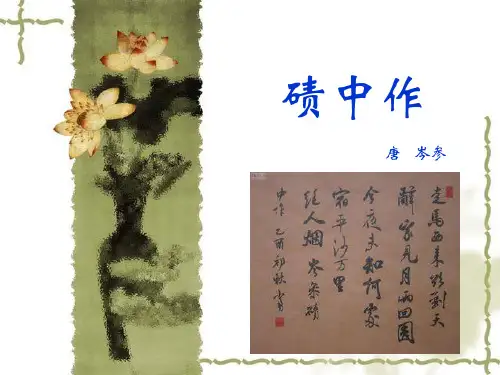 碛中作
唐 岑参
走馬西来欲到天
辭家見月兩回圆
今夜未知何處
宿平沙万里
绝人烟 岑参碛
中作 乙酉初秋